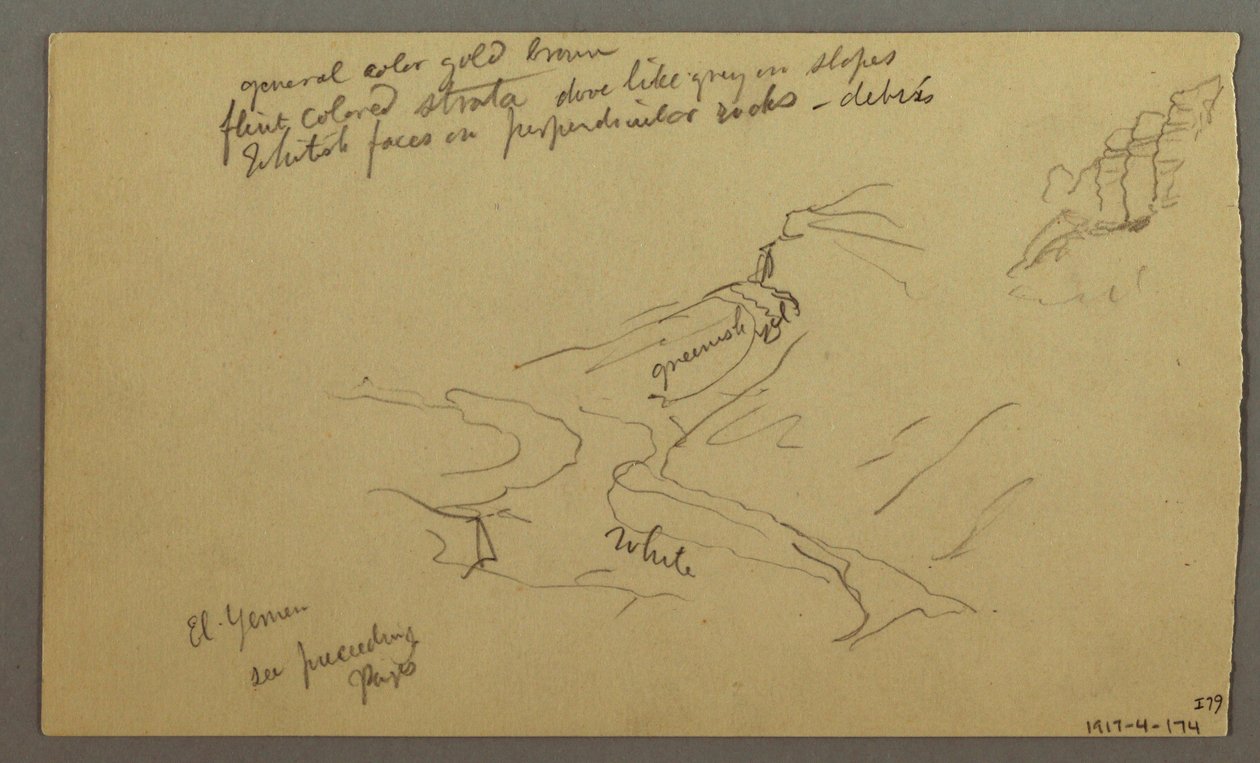 general color gold brown
flint colored strata dove like grey on slopes
Whitish faces on perpendicular rocks - debris
greenish yel
White
El-Yemen
see preceeding
Pages
I79
1917-4-174